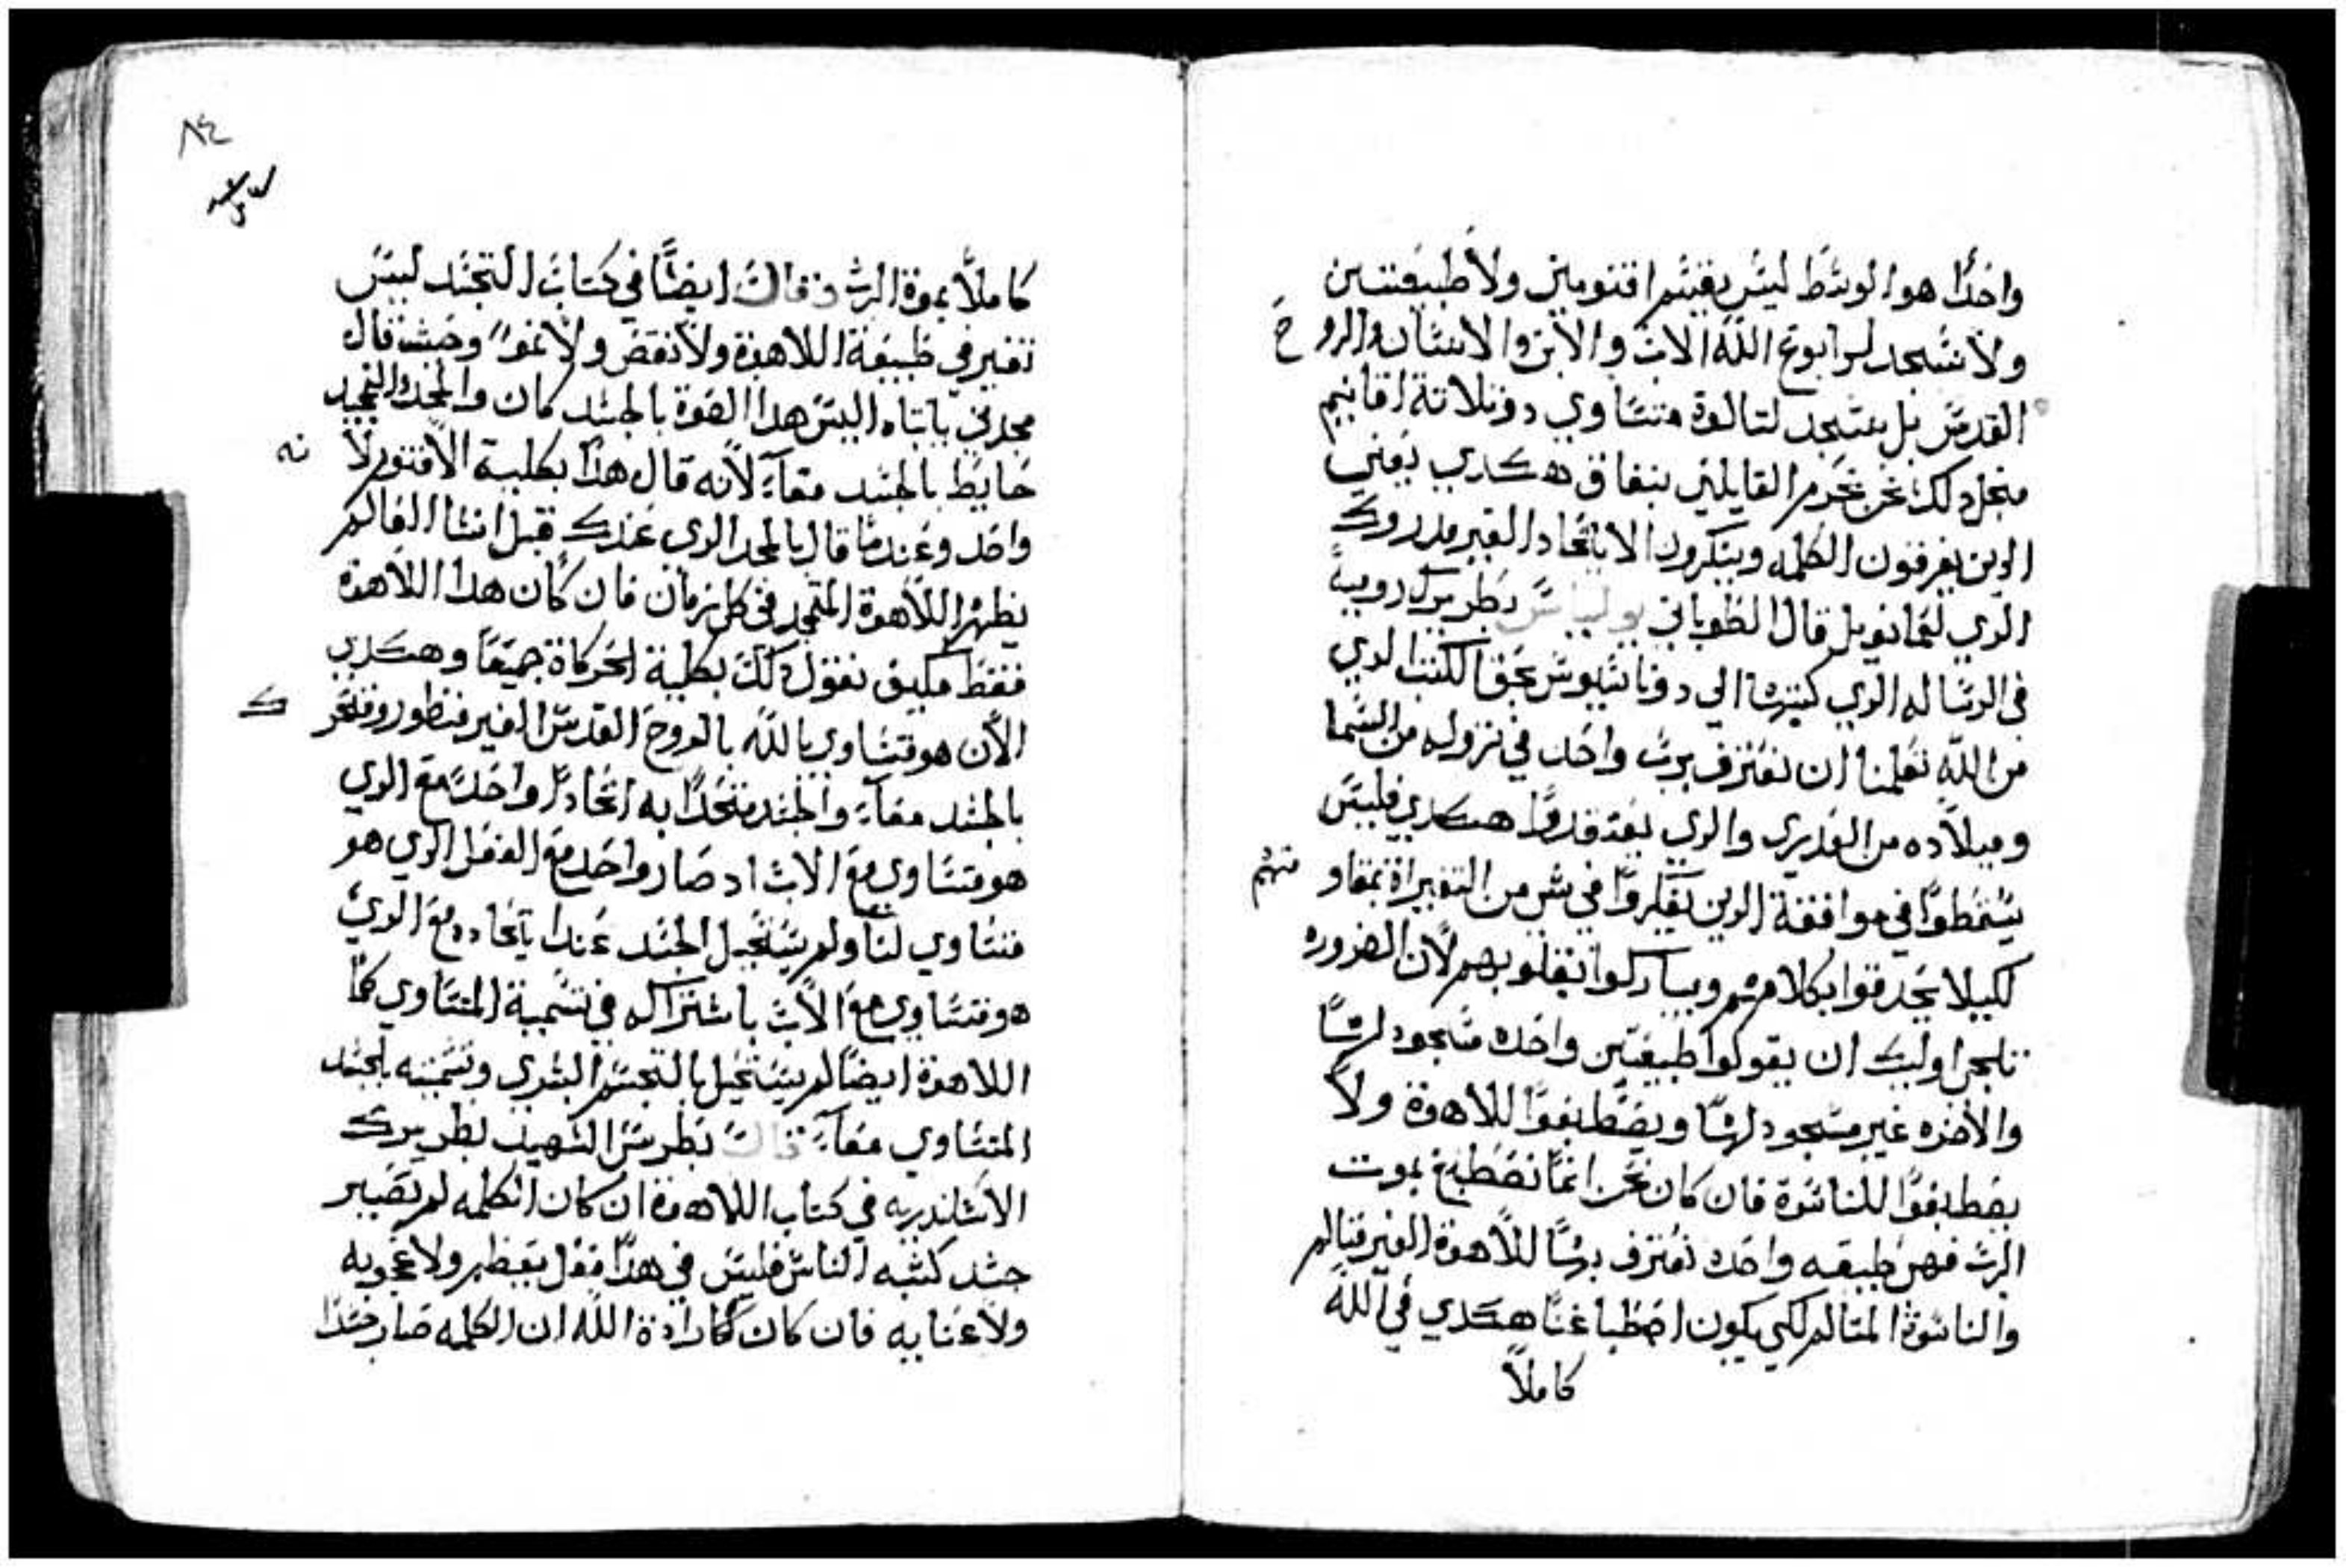 واحدًا هو الوسط ليس يقسم اقنومين ولا طبيعتين
ولا نسجد لرابوع الله الاب والابن والانسان والروح
القدس بل نسجد لتالوت متساوي دو تلاتة اقانيم
منجل دلك نحن نحرم القايلين بنفاق هكدي يعني
الدين يفرقون الكلمه وينكرون الاتحاد الغير مدروك
الدي لعمانويل قال الطوباني يولياس بطريرك رومية
في الرسالة الدي كتبها الي ديوناسيوس بحق الكتب الدي
من الله تعلمنا ان نعترف برب واحد في نزوله من السما
وميلاده من العدري والدي يعتقدوا هكدي فليس
يسقطوا في موافقة الدين يفكروا في شي من التغييرات بمقاو منهم
لكيلا يحدقوا بكلامهم ويباركوا بقلوبهم لان الضروره
تلجي اوليك ان يقولوا طبيعتين واحده مسجود لها
والاخره غير مسجود لها ويصطبغوا للاهوة ولا
يصطبغوا للناسوة فان كان نحن انما نصطبغ بموت
الرب فهي طبيعه واحده نعترف بها للاهوة الغير متالم
والناسوة المتالم لكي يكون اصطباغنا هكدي في الله
كاملًا
٨٤
كاملًا بموة الرب وقال ايضًا في كتاب التجسد ليس
تغير في طبيعة اللاهوة ولا نقص ولا نمو وحيث قال
مجدني يا ابتاه اليس هدا القوة بالجسد كان والمجد التمجيد
حايط بالجسد معآ لانه قال هدا بكلية الاقنوم لانه
واحد وعندما قال بالمجد الدي عندك قبل انشا العالم
يظهر اللاهوة المتمجد في كل زمان فان كان هدا اللاهوة
فقط فكيف نقول دلك بكلية الحركاة جميعًا وهكدي
الان هو متساوي بالله بالروح القدس الغير منظور ومتحرك
بالجسد معآ والجسد متحدًا به اتحادًا واحد مع الدي
هو متساوي مع الاب اد صار واحد مع العقل الدي هو
متساوي لنا ولم يستحيل الجسد عندا ياتحاده مع الدي
هو متساوي مع الاب باشتراك في تسمية المتساوي كما
اللاهوة ايضًا لم يستحيل بالتجسم البشري وتسميته بالجسد
المتساوي معآ قال بطرس الشهيد بطريرك
الاسكندريه في كتاب اللاهوة ان كان الكلمه لم تصير
جسد كشبه الناس فليس في هدا فعل يعظم ولا عجوبه
ولا عنايه فان كان كارادة الله ان الكلمه صار جسدا